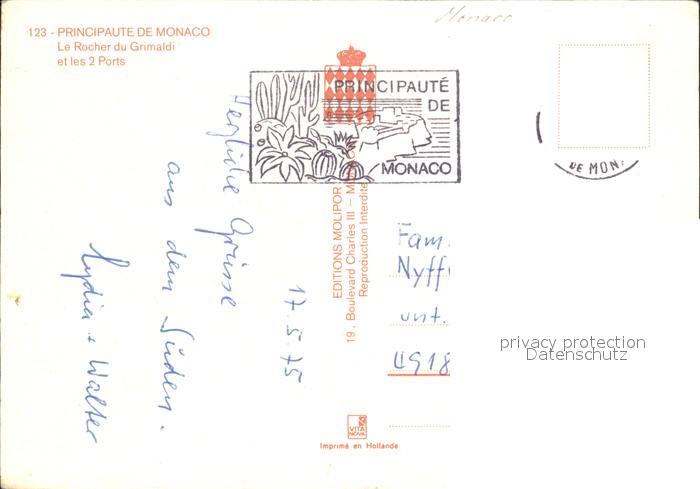 Monaco
123 - PRINCIPAUTE DE MONACO
Le Rocher du Grimaldi
et les 2 Ports
PRINCIPAUTÉ
DE
MONACO
DE MON
Herzliche Grüsse
aus dem Süden.
Lydia + Walter
17.5.75
EDITIONS MOLIPOR
19, Boulevard Charles III – M
Reproduction Interdite
Fam.
Nyff
unt.
4918
privacy protection
Datenschutz
VITA
NOVA
Imprimé en Hollande